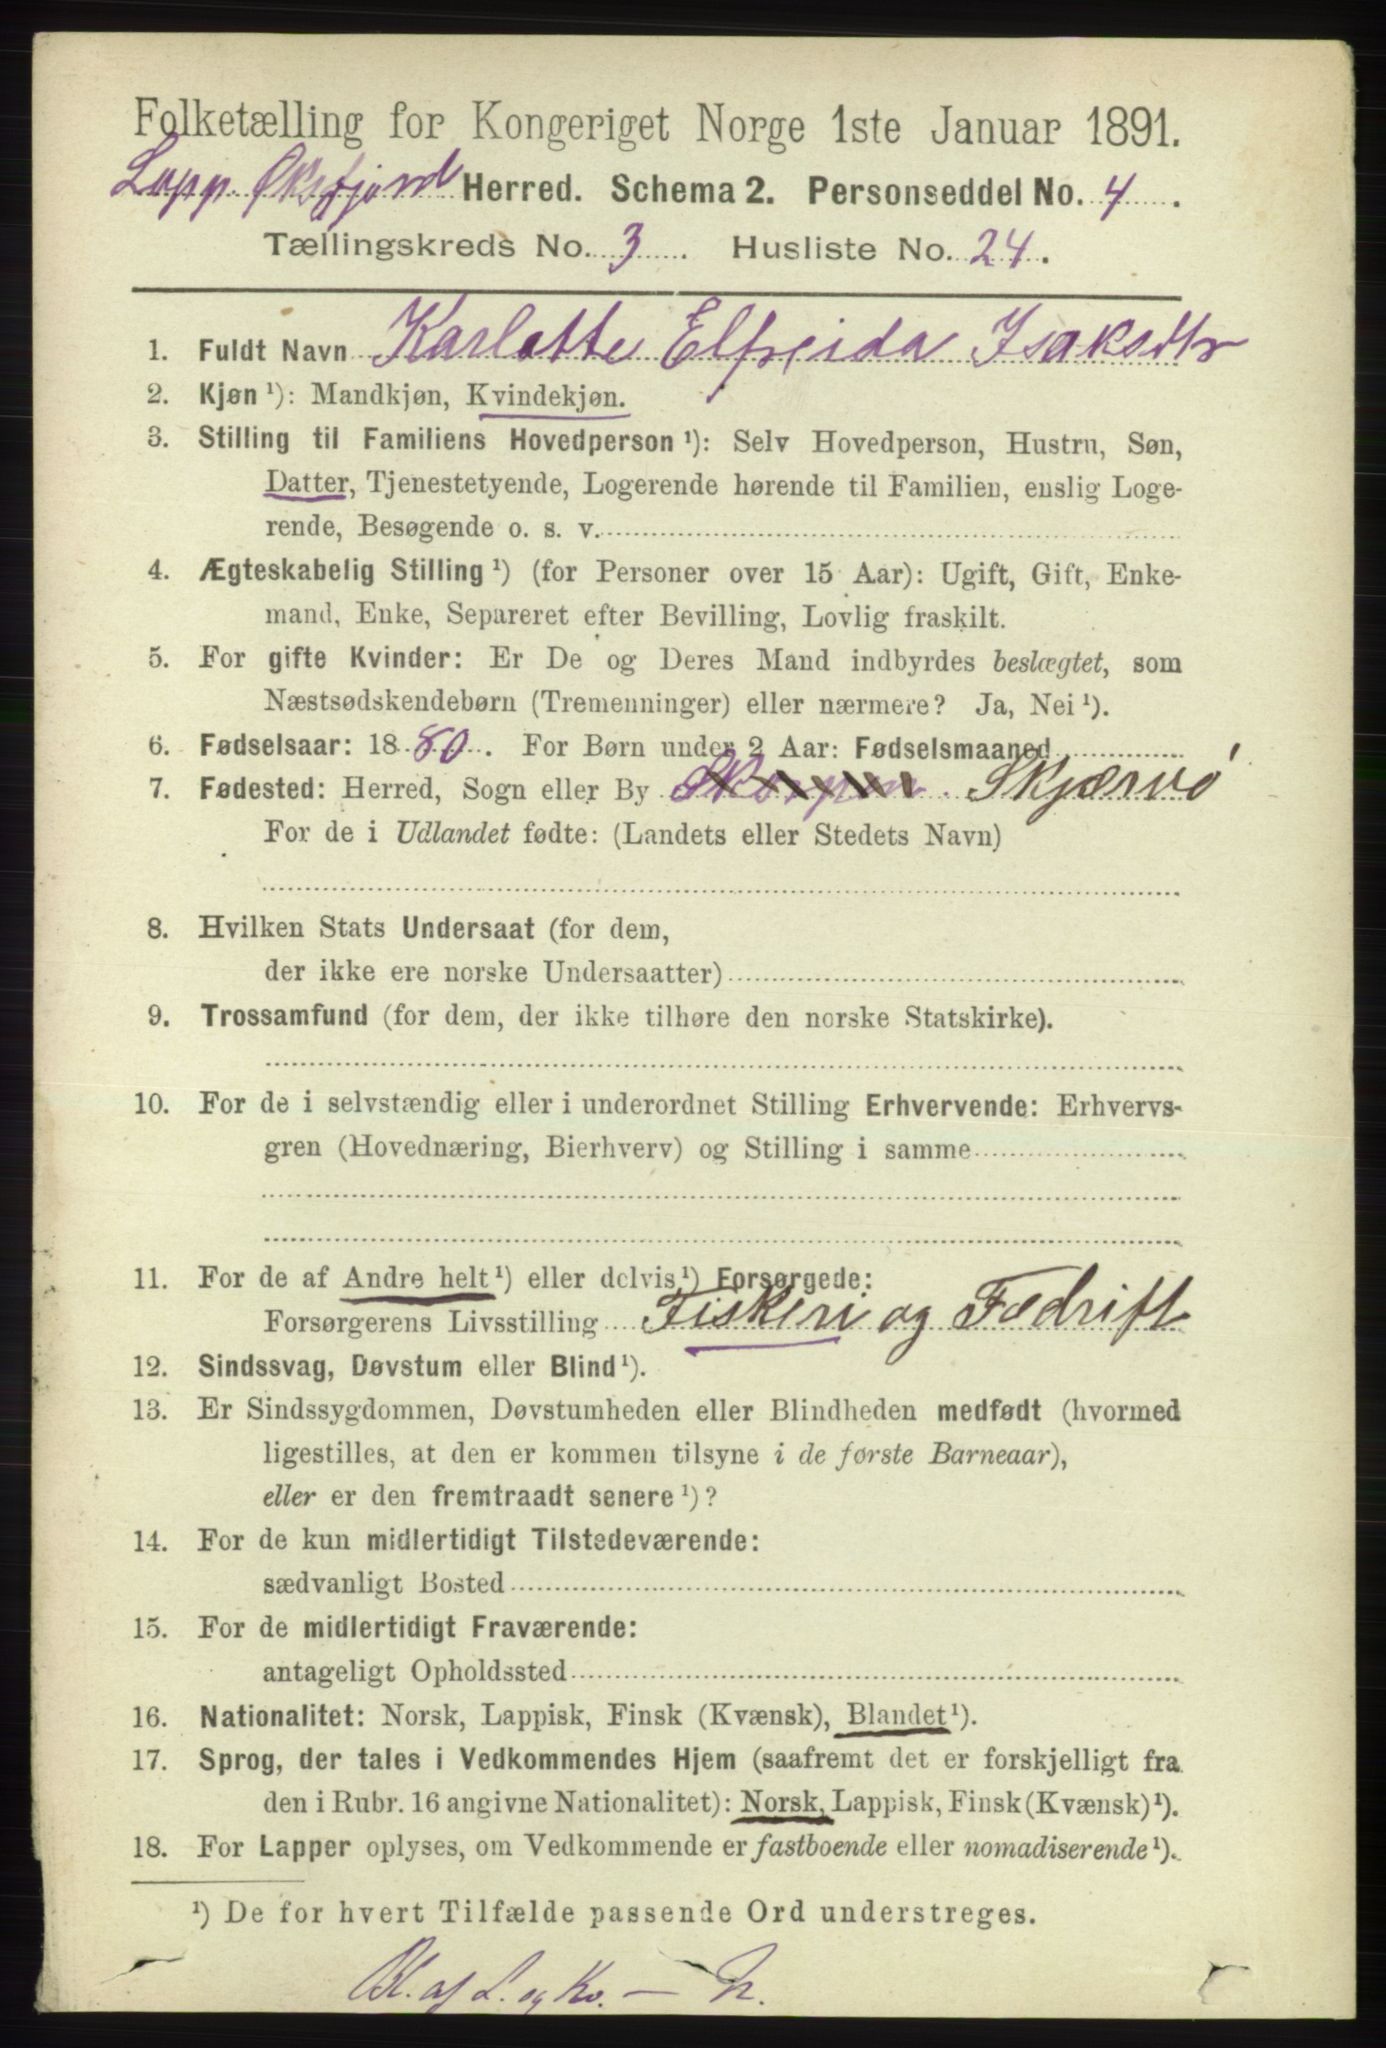 Folketælling for Kongeriget Norge 1ste Januar 1891.
Lopp. Øksfjord Herred. Schema 2. Personseddel No. 4.
Tællingskreds No. 3. Husliste No. 24.
1. Fuldt Navn Karlotte Elfreida Isaksdtr
2. Kjøn ¹): Mandkjøn, Kvindekjøn.
3. Stilling til Familiens Hovedperson ¹): Selv Hovedperson, Hustru, Søn,
Datter, Tjenestetyende, Logerende hørende til Familien, enslig Loge-
rende, Besøgende o. s. v.
4. Ægteskabelig Stilling ¹) (for Personer over 15 Aar): Ugift, Gift, Enke-
mand, Enke, Separeret efter Bevilling, Lovlig fraskilt.
5. For gifte Kvinder: Er De og Deres Mand indbyrdes beslægtet, som
Næstsødskendebørn (Tremenninger) eller nærmere? Ja, Nei ¹).
6. Fødselsaar: 1880. For Børn under 2 Aar: Fødselsmaaned
7. Fødested: Herred, Sogn eller By Skjærvö
For de i Udlandet fødte: (Landets eller Stedets Navn)
8. Hvilken Stats Undersaat (for dem,
der ikke ere norske Undersaatter)
9. Trossamfund (for dem, der ikke tilhøre den norske Statskirke).
10. For de i selvstændig eller i underordnet Stilling Erhvervende: Erhvervs-
gren (Hovednæring, Bierhverv) og Stilling i samme
11. For de af Andre helt ¹) eller delvis ¹) Forsørgede:
Forsørgerens Livsstilling Fiskeri og Fædrift
12. Sindssvag, Døvstum eller Blind ¹).
13. Er Sindssygdommen, Døvstumheden eller Blindheden medfødt (hvormed
ligestilles, at den er kommen tilsyne i de første Barneaar),
eller er den fremtraadt senere ¹)?
14. For de kun midlertidigt Tilstedeværende:
sædvanligt Bosted
15. For de midlertidigt Fraværende:
antageligt Opholdssted
16. Nationalitet: Norsk, Lappisk, Finsk (Kvænsk), Blandet ¹).
17. Sprog, der tales i Vedkommendes Hjem (saafremt det er forskjelligt fra
den i Rubr. 16 angivne Nationalitet): Norsk, Lappisk, Finsk (Kvænsk) ¹).
18. For Lapper oplyses, om Vedkommende er fastboende eller nomadiserende ¹).
¹) De for hvert Tilfælde passende Ord understreges.
Bl. af L. og Kv. — N.